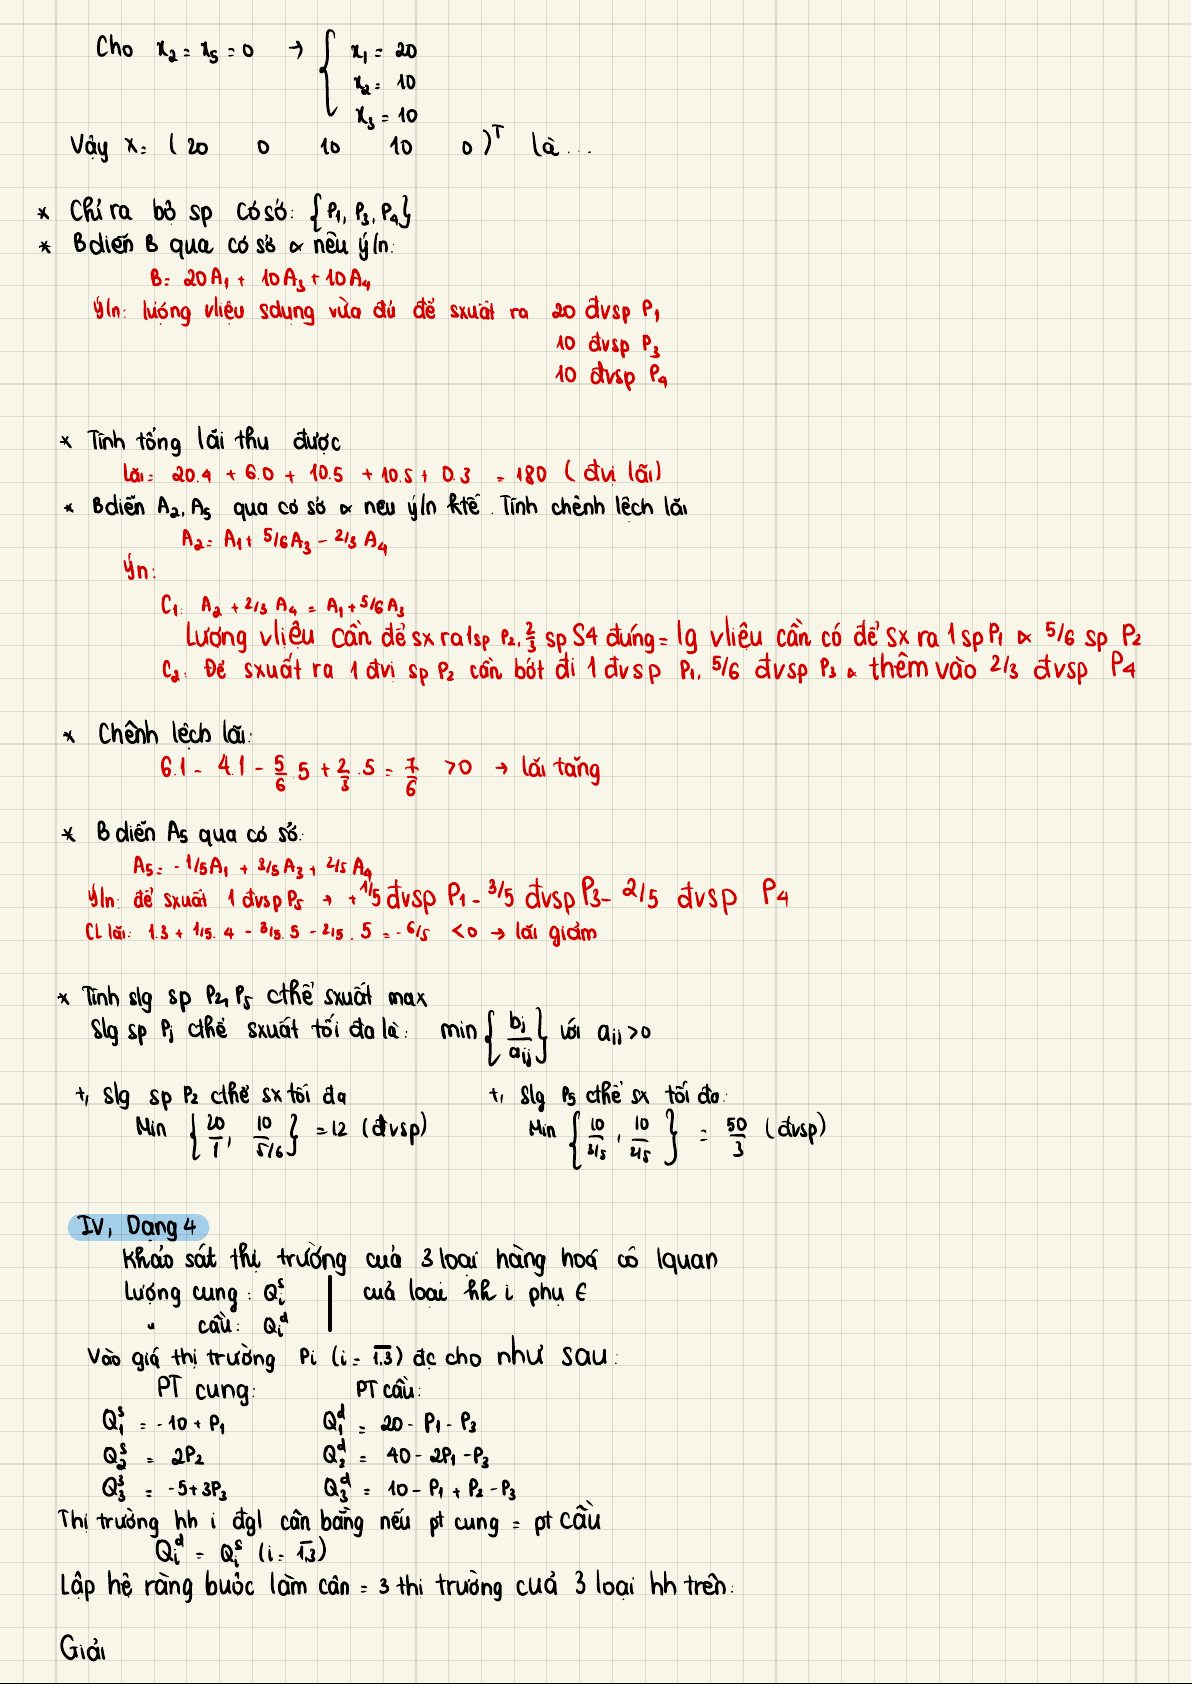 Cho x₂ = x₅ = 0 → { x₁ = 20
x₂ = 10
x₃ = 10
Vậy x = ( 20 0 10 10 0 )ᵀ là ...
* Chỉ ra bộ sp cơ sở: {P₁, P₃, P₄}
* Bdiễn B qua cơ sở & nêu ý/n:
B = 20A₁ + 10A₃ + 10A₄
Ý/n: lượng vliệu sdụng vừa đủ để sxuất ra 20 đvsp P₁
10 đvsp P₃
10 đvsp P₄
* Tính tổng lãi thu được
Lãi = 20.4 + 6.0 + 10.5 + 10.5 + 0.3 = 180 (đvị lãi)
* Bdiễn A₂, A₅ qua cơ sở & nêu ý/n ktế. Tính chênh lệch lãi
A₂ = A₁ + 5/6A₃ - 2/3 A₄
Ýn:
C₁: A₂ + 2/3 A₄ = A₁ + 5/6A₃
Lượng vliệu cần để sx ra 1sp P₂, 2/3 sp S4 đúng = lg vliệu cần có để sx ra 1 sp P₁ & 5/6 sp P₂
C₂: Để sxuất ra 1 đvị sp P₂ cần bớt đi 1 đvsp P₁, 5/6 đvsp P₃ & thêm vào 2/3 đvsp P₄
* Chênh lệch lãi:
6.1 - 4.1 - 5/6 . 5 + 2/3 . 5 = 7/6 > 0 → lãi tăng
* Bdiễn A₅ qua cơ sở:
A₅ = -1/5A₁ + 3/5A₃ + 2/5 A₄
Ý/n: để sxuất 1 đvsp P₅ → +1/5 đvsp P₁ - 3/5 đvsp P₃ - 2/5 đvsp P₄
CL lãi: 1.3 + 1/5. 4 - 3/5. 5 - 2/5. 5 = -6/5 < 0 → lãi giảm
* Tính slg sp P₂, P₅ cthể sxuất max
Slg sp Pⱼ cthể sxuất tối đa là: min { bⱼ/aᵢⱼ } với aᵢⱼ > 0
+, Slg sp P₂ cthể sx tối đa +, Slg P₅ cthể sx tối đa:
Min { 20/1, 10/5/6 } = 12 (đvsp) Min { 10/3/5, 10/2/5 } = 50/3 (đvsp)
IV, Dạng 4
Khảo sát thị trường của 3 loại hàng hoá có lquan
Lượng cung: Qᵢˢ | của loại hh i phụ ∈
" cầu: Qᵢᵈ
Vào giá thị trường Pi (i = 1,3) đc cho như sau:
PT cung: PT cầu:
Q₁ˢ = -10 + P₁ Q₁ᵈ = 20 - P₁ - P₃
Q₂ˢ = 2P₂ Q₂ᵈ = 40 - 2P₁ - P₃
Q₃ˢ = -5 + 3P₃ Q₃ᵈ = 10 - P₁ + P₂ - P₃
Thị trường hh i đgl cân bằng nếu pt cung = pt cầu
Qᵢᵈ = Qᵢˢ (i = 1,3)
Lập hệ ràng buộc làm cân = 3 thị trường của 3 loại hh trên:
Giải